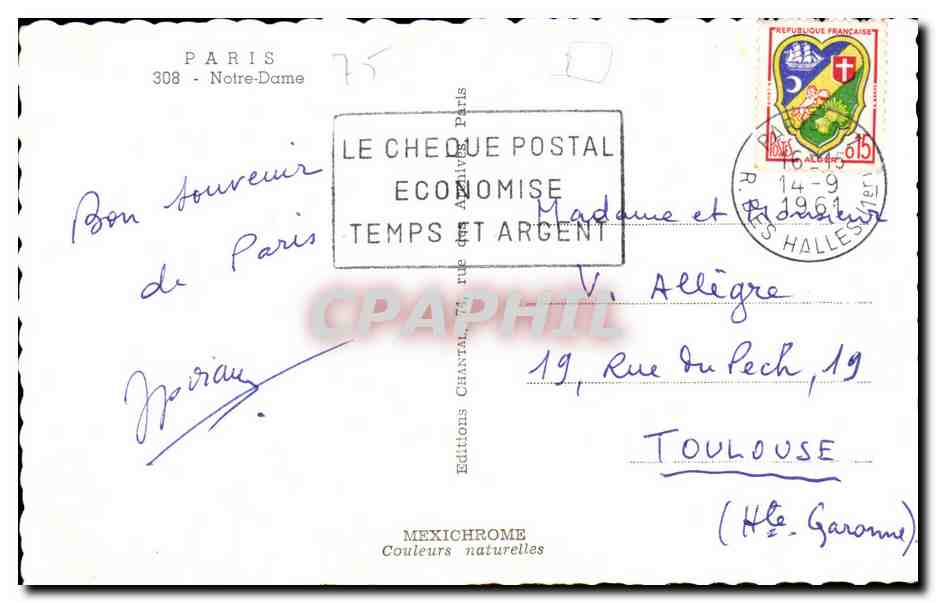 PARIS
308 - Notre-Dame
75
Bon souvenir
de Paris
LE CHEQUE POSTAL
ECONOMISE
TEMPS ET ARGENT
Editions CHANTAL, 74, rue des Archives, Paris
REPUBLIQUE FRANÇAISE
POSTES
ALGER
0,15
16-15
14-9
1961
R. DES HALLES (1er)
Madame et Monsieur
V. Allègre
19, Rue du Pech, 19
TOULOUSE
(Hte. Garonne)
MEXICHROME
Couleurs naturelles
CPAPHIL